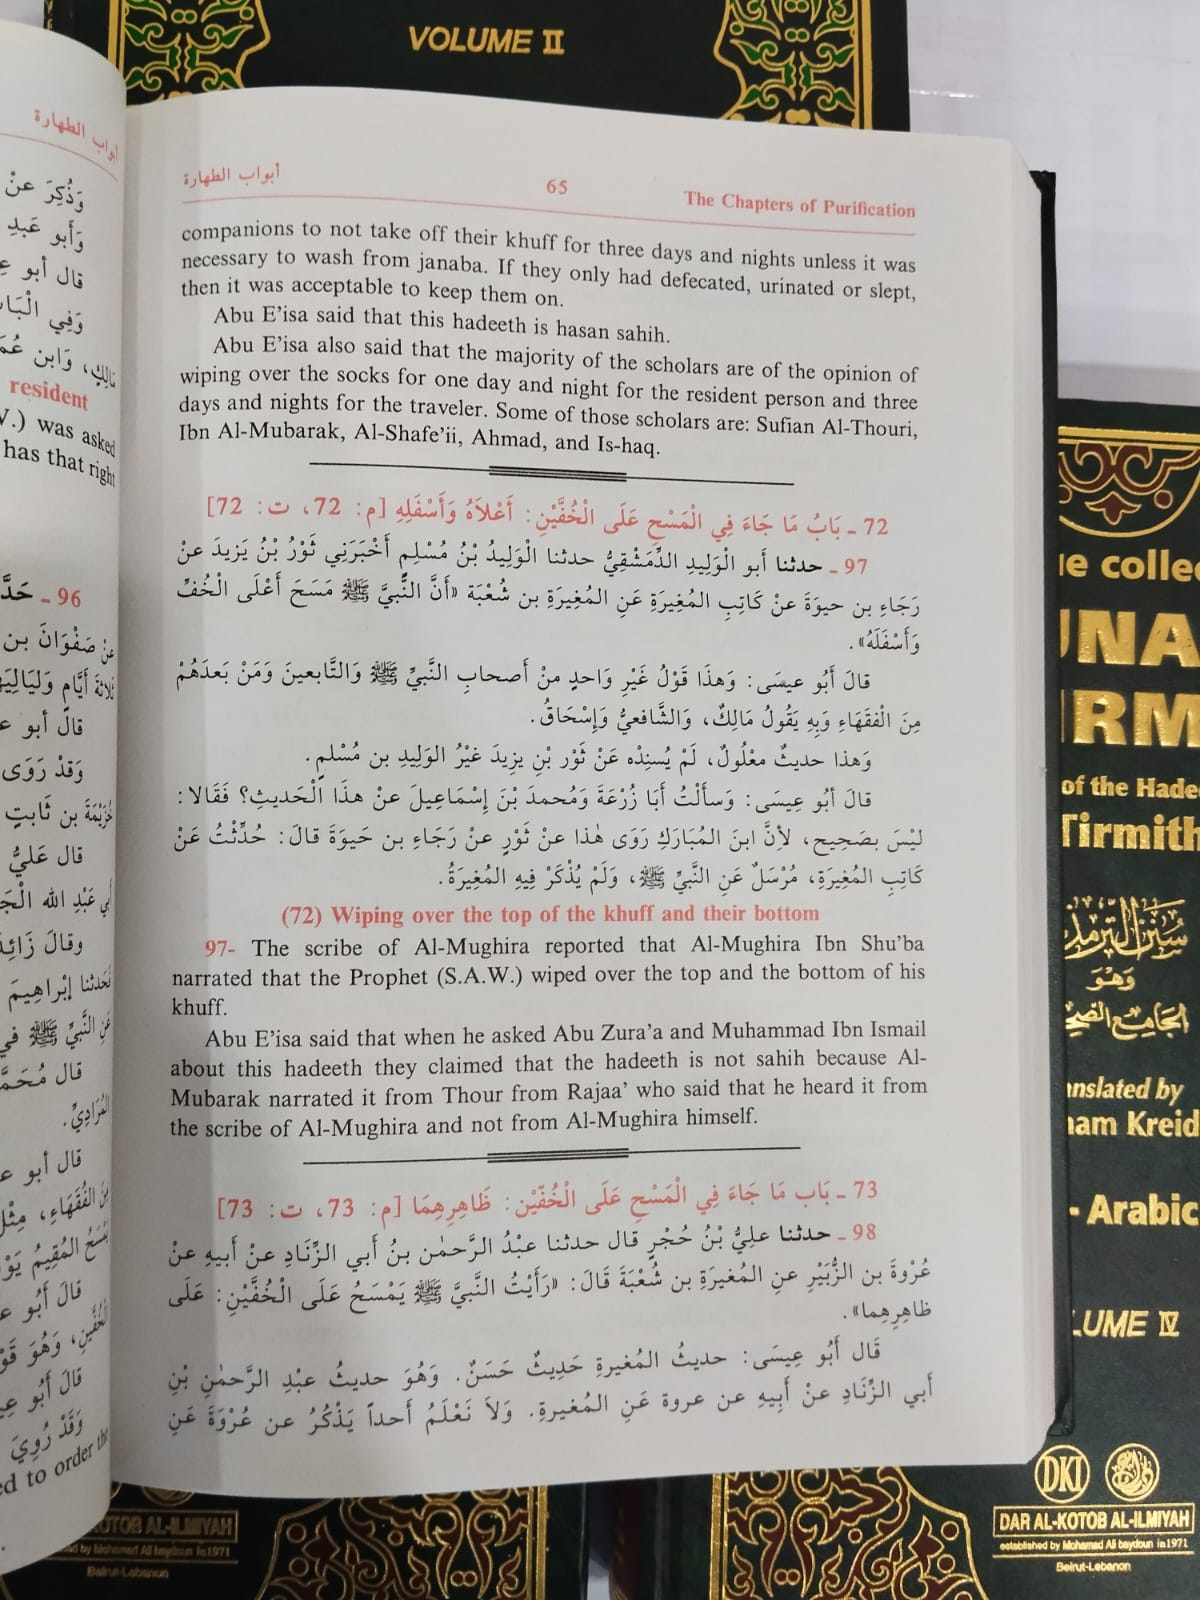 VOLUME II
أبواب الطهارة
وَذُكِرَ عنْ
وَأَبو عَبدِ
قال أبو
وَفِي الْبَاب
مَالِكٍ، وَابن عُمَ
resident
V.) was asked
has that right
96 ـ حَدَّ
عنْ صَفْوَانَ بن
ثَلاثةَ أَيَّامٍ وَلَيَالِيَه
قالَ أبو
وَقدْ رَوَى
خُزَيْمَةَ بن ثَابتٍ
قال عَليُّ
أبي عَبْدِ الله الْجَ
وقالَ زَائِدَ
فَحَدثنا إبْراهِيمَ
عَنِ النَّبيِّ ﷺ في
قال مُحَمَّ
المُرَادِيِّ.
قال أبو
مِنَ الْفُقَهَاءِ، مِثْلِ
يَمْسَحُ المُقِيمُ يَوْ
قالَ أَبُو
الْخُفَّينِ، وَهُوَ قَوْ
قالَ أَبُو
وَقَدْ رُوِيَ
ed to order the
أبواب الطهارة 65 The Chapters of Purification
companions to not take off their khuff for three days and nights unless it was
necessary to wash from janaba. If they only had defecated, urinated or slept,
then it was acceptable to keep them on.
Abu E’isa said that this hadeeth is hasan sahih.
Abu E’isa also said that the majority of the scholars are of the opinion of
wiping over the socks for one day and night for the resident person and three
days and nights for the traveler. Some of those scholars are: Sufian Al-Thouri,
Ibn Al-Mubarak, Al-Shafe’ii, Ahmad, and Is-haq.
72 ـ بَابُ مَا جَاءَ فِي الْمَسْحِ عَلَى الْخُفَّيْنِ: أَعْلاَهُ وَأَسْفَلِهِ [م: 72، ت: 72]
97 ـ حدثنا أبو الْوَلِيدِ الدِّمَشْقِيُّ حدثنا الْوَلِيدُ بْنُ مُسْلِمٍ أَخْبَرَنِي ثَوْرُ بْنُ يَزِيدَ عنْ
رَجَاءِ بن حيوَةَ عنْ كَاتِبِ المُغِيرَةِ عَنِ المُغِيرَةِ بن شُعْبَة «أنَّ النَّبيَّ ﷺ مَسَحَ أَعْلَى الْخُفِّ
وَأَسْفَلَهُ».
قالَ أَبُو عيسَى: وَهذَا قَوْلُ غَيْرِ وَاحدٍ منْ أَصحابِ النَّبيِّ ﷺ وَالتَّابعينَ وَمَنْ بَعدَهُمْ
مِنَ الْفقَهَاءِ وَبِهِ يَقُولُ مَالِكٌ، وَالشَّافعيُّ وَإسْحَاقُ.
وَهذا حديثٌ معْلُولٌ، لَمْ يُسنِدْه عَنْ ثَوْر بْنِ يزِيدَ غيْرُ الوَلِيدِ بن مُسْلمٍ.
قالَ أبُو عِيسَى: وَسأَلْتُ أبَا زُرْعَةَ وَمُحمدَ بْنَ إِسْمَاعِيلَ عنْ هذَا الْحَديثِ؟ فَقَالا:
ليْسَ بصَحِيح، لأنَّ ابنَ المُبَارَكِ رَوَى هٰذا عنْ ثَوْرٍ عنْ رَجَاءِ بن حَيوَةَ قالَ: حُدِّثْتُ عَنْ
كَاتِبِ المُغِيرَةِ، مُرْسَلٌ عَنِ النَّبيِّ ﷺ، وَلَمْ يُذْكَرْ فِيهِ المُغِيرَةُ.
(72) Wiping over the top of the khuff and their bottom
97- The scribe of Al-Mughira reported that Al-Mughira Ibn Shu’ba
narrated that the Prophet (S.A.W.) wiped over the top and the bottom of his
khuff.
Abu E’isa said that when he asked Abu Zura’a and Muhammad Ibn Ismail
about this hadeeth they claimed that the hadeeth is not sahih because Al-
Mubarak narrated it from Thour from Rajaa’ who said that he heard it from
the scribe of Al-Mughira and not from Al-Mughira himself.
73 ـ بَاب مَا جَاءَ فِي الْمَسْحِ عَلَى الْخُفَّيْن: ظَاهِرِهِمَا [م: 73، ت: 73]
98 ـ حدثنا علِيُّ بْنُ حُجْرٍ قال حدثنا عبْدُ الرَّحمٰن بنُ أبي الزِّنَادِ عنْ أَبيهِ عنْ
عُرْوَةَ بن الزُّبَيْرِ عنِ المُغيرَةِ بن شُعْبَةَ قَالَ: «رَأَيْتُ النَّبيَّ ﷺ يَمْسَحُ عَلَى الْخُفَّيْنِ: عَلَى
ظاهِرِهِما».
قَال أَبُو عِيسَى: حديثُ المُغيرةِ حَدِيثٌ حَسَنٌ. وَهُوَ حديثُ عبْدِ الرَّحمٰنِ بْنِ
أبي الزِّنَادِ عنْ أَبِيهِ عن عروة عَنِ المُغيرةِ. وَلاَ نَعْلَمُ أَحداً يَذْكُرُ عن عُرْوَةَ عَنِ
ue collec
UNA
IRM
of the Hade
Tirmith
سُنَنُ التِّرمذ
وَهُوَ
الجَامِعُ الصَّح
anslated by
am Kreid
- Arabic
LUME IV
DKI
DAR AL-KOTOB AL-ILMIYAH
established by Mohamad Ali baydoun in 1971
Beirut-Lebanon
KOTOB AL-ILMIYAH
ed by Mohamad Ali baydoun in 1971
Beirut-Lebanon